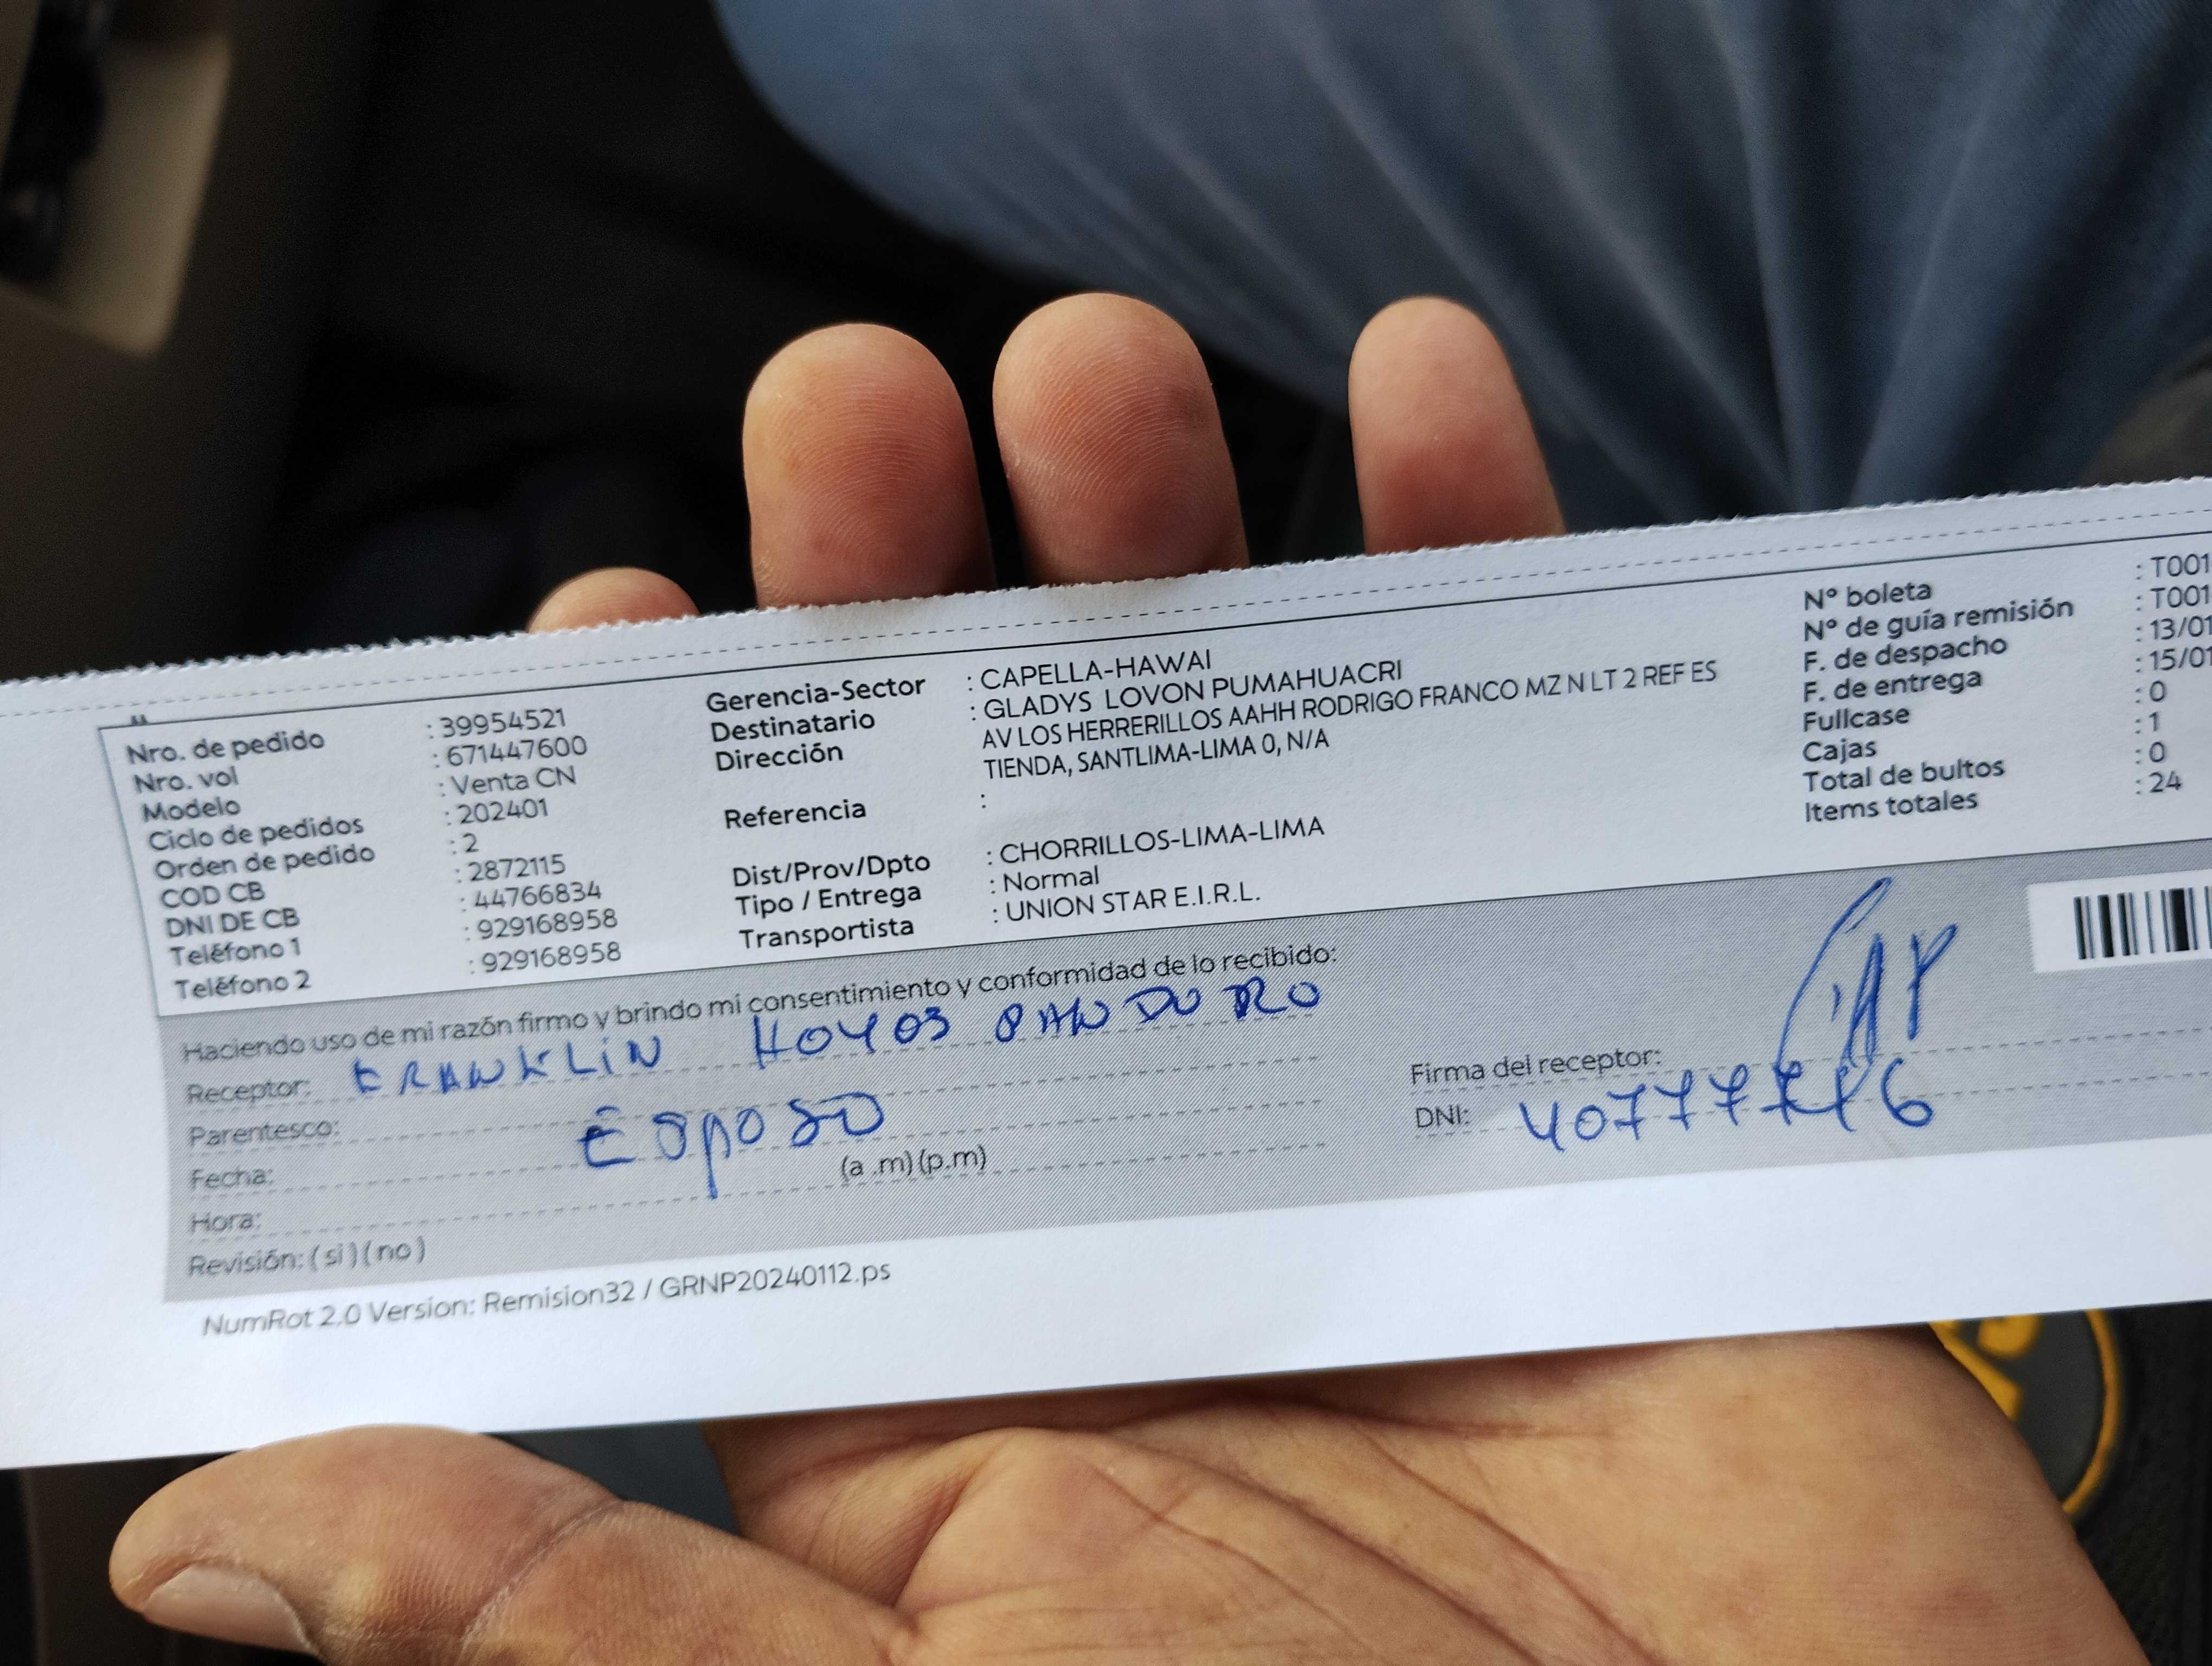 Nro. de pedido : 39954521
Nro. vol : 671447600
Modelo : Venta CN
Ciclo de pedidos : 202401
Orden de pedido : 2
COD CB : 2872115
DNI DE CB : 44766834
Teléfono 1 : 929168958
Teléfono 2 : 929168958
Gerencia-Sector : CAPELLA-HAWAI
Destinatario : GLADYS LOVON PUMAHUACRI
Dirección AV LOS HERRERILLOS AAHH RODRIGO FRANCO MZ N LT 2 REF ES
TIENDA, SANTLIMA-LIMA 0, N/A
Referencia :
Dist/Prov/Dpto : CHORRILLOS-LIMA-LIMA
Tipo / Entrega : Normal
Transportista : UNION STAR E.I.R.L.
N° boleta : T001
N° de guía remisión : T001
F. de despacho : 13/01
F. de entrega : 15/01
Fullcase : 0
Cajas : 1
Total de bultos : 0
Items totales : 24
Haciendo uso de mi razón firmo y brindo mi consentimiento y conformidad de lo recibido:
Receptor: FRANKLIN HOYOS PANDURO
Parentesco: Esposo
Fecha:
Hora: (a .m) (p.m)
Revisión: ( si ) ( no )
Firma del receptor:
DNI:
NumRot 2.0 Version: Remision32 / GRNP20240112.ps